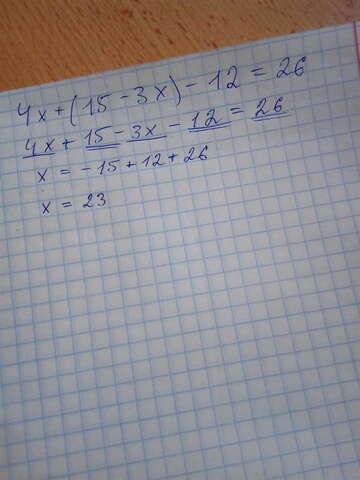 4x+(15-3x)-12=26
4x+15-3x-12=26
x=-15+12+26
x=23